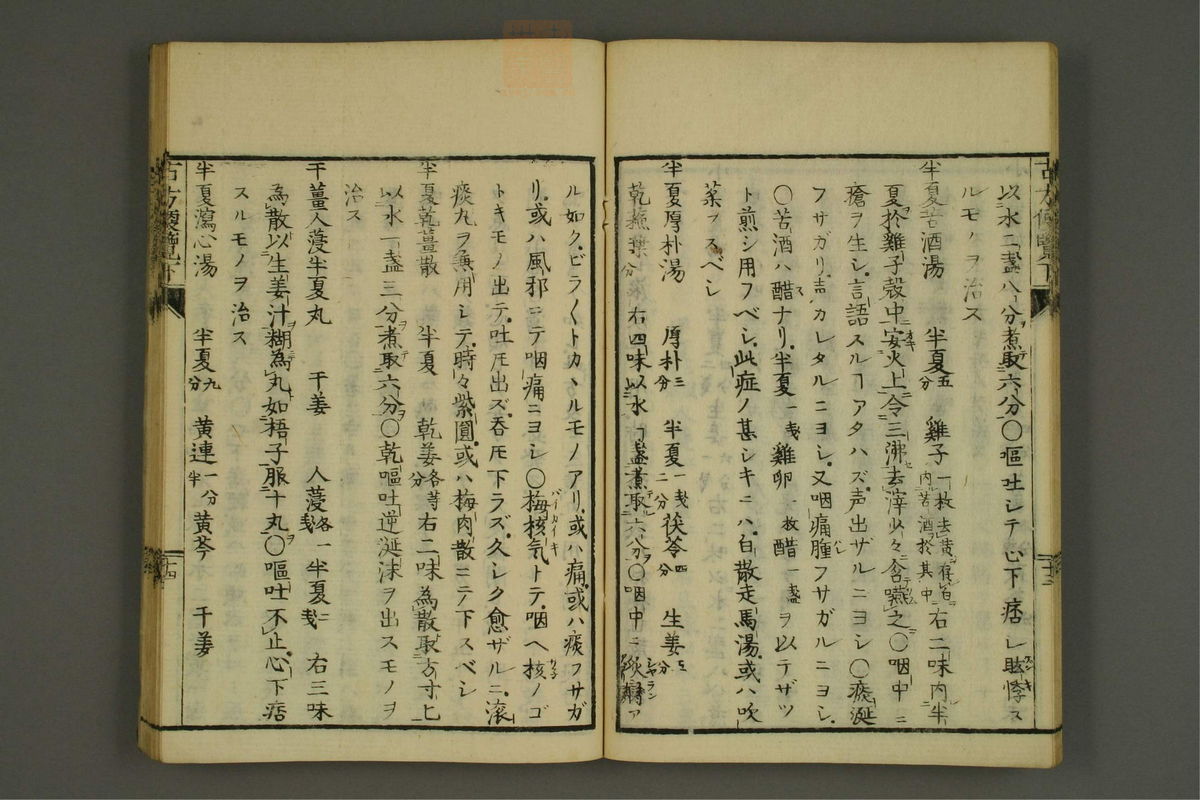 古方便覧下
以水二盞八分煮取六分〇嘔吐シテ心下痞シ眩悸ス
ルモノヲ治ス
半夏苦酒湯 半夏五分 雞子一枚去黄 内苦酒於其中 右二味内半
夏於雞子殻中安火上令三沸去滓少々含嚥之〇咽中ニ
瘡ヲ生シ言語スルヿアタハズ声出ザルニヨシ〇痰涎
フサガリ声カレタルニヨシ又咽痛腫フサガルニヨシ
〇苦酒ハ醋ナリ半夏一戔雞卵一枚醋一盞ヲ以テザツ
ト煎シ用フベシ此症ノ甚シキニハ白散走馬湯或ハ吹
薬ヲスベシ
半夏厚朴湯 厚朴三分 半夏一戔二分 茯苓四分 生姜五分
乾蘓葉 右四味以水一盞煮取六分〇咽中ニ炙臠ア
十三
ル如クビラ〱トカヽルモノアリ或ハ痛或ハ痰フサガ
リ或ハ風邪ニテ咽痛ニヨシ〇梅核気トテ咽ヘ核ノゴ
トキモノ出テ吐𪜈出ズ呑𪜈下ラズ久シク愈ザルニ滚
痰丸ヲ兼用シテ時々紫圓或ハ梅肉散ニテ下スベシ
半夏乾薑散 半夏 乾姜各等分 右二味為散取方寸匕
以水一盞三分煮取六分〇乾嘔吐逆涎沫ヲ出スモノヲ
治ス
干薑人薓半夏丸 干姜 人薓各一戔 半夏二戔 右三味
為散以生姜汁糊為丸如梧子服十丸〇嘔吐不止心下痞
スルモノヲ治ス
半夏瀉心湯 半夏九分 黄連一分半 黄芩 干姜
古方便覧下
十四